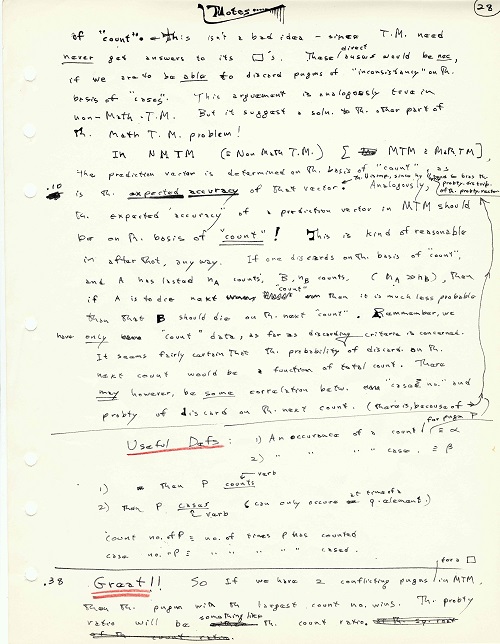 Notes
28
of "count". This isn't a bad idea — since T.M. need
never get answers to its □'s. These direct answs would be nec,
if we are to be able to discard pugms of "inconsistancy" on th.
basis of "cases". This argument is analogously true in
non-Math. T.M. But it suggest a soln. to th. other part of
th. Math T.M. problem!
In NMTM (≡ Non Math T.M.) [ MTM ≡ Math TM ],
the prediction vector is determined on th. basis of "count", as
.10 is th. expected accuracy of that vector. Analogously,
th. expected accuracy of a prediction vector in MTM should
be on th. basis of "count"! This is kind of reasonable
in after that, any way. If one discards on th. basis of "count",
and A has lasted nA counts, B, nB counts, (nA >> nB), then
if A is to die next "count" then it is much less probable
than that B should die on th. next "count". Remmember, we
have only "count" data, as far as discarding criteria is concerned.
It seems fairly certain that th. probability of discard on th.
next count would be a function of total count. There
may however, be some correlation betw. "cases no." and
probty of discard on th. next count. (there is, because of
Useful Defs : 1) An occurance of a count for pugm P ≡ α
2) " " " " case. ≡ β
1) Then P counts
verb
2) Then P cases (can only occure at time of a q. element.)
verb
count no. of P ≡ no. of times P has counted
case no. of P ≡ " " " " cased.
.38 Great!! So If we have 2 conflicting pugms in MTM, for a □
then th. pugm with th. largest count no, wins. Th. probty
ratio will be something like th. count ratio.